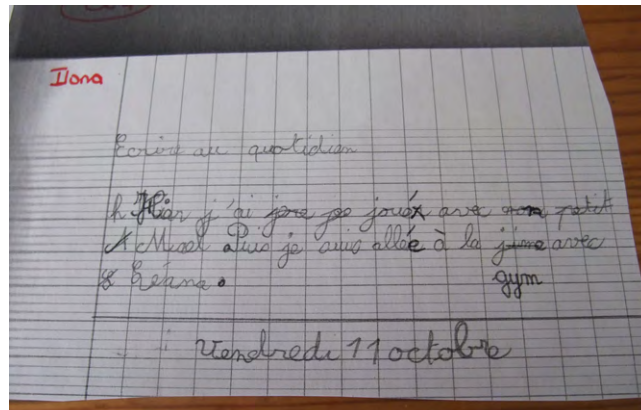 Ilona
Ecrire au quotidian
Hiar j'ai joué avec mon petit
Puis je suis allée à la jime avec
gym
Vendredi 11 octobre